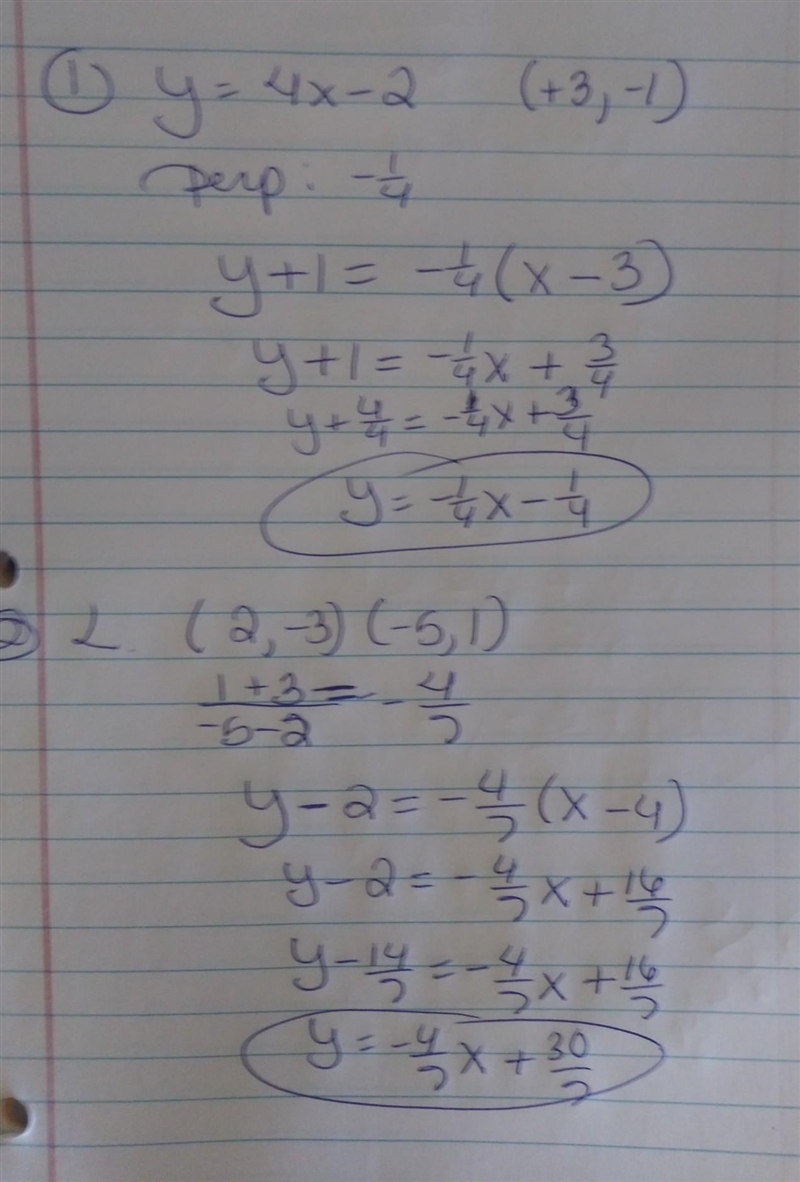 ① y = 4x - 2 (+3, -1)
perp: -1/4
y + 1 = -1/4(x - 3)
y + 1 = -1/4x + 3/4
y + 4/4 = -1/4x + 3/4
y = -1/4x - 1/4
② L. (2, -3) (-5, 1)
1+3/-5-2 = -4/7
y - 2 = -4/7(x - 4)
y - 2 = -4/7x + 16/7
y - 14/7 = -4/7x + 16/7
y = -4/7x + 30/7